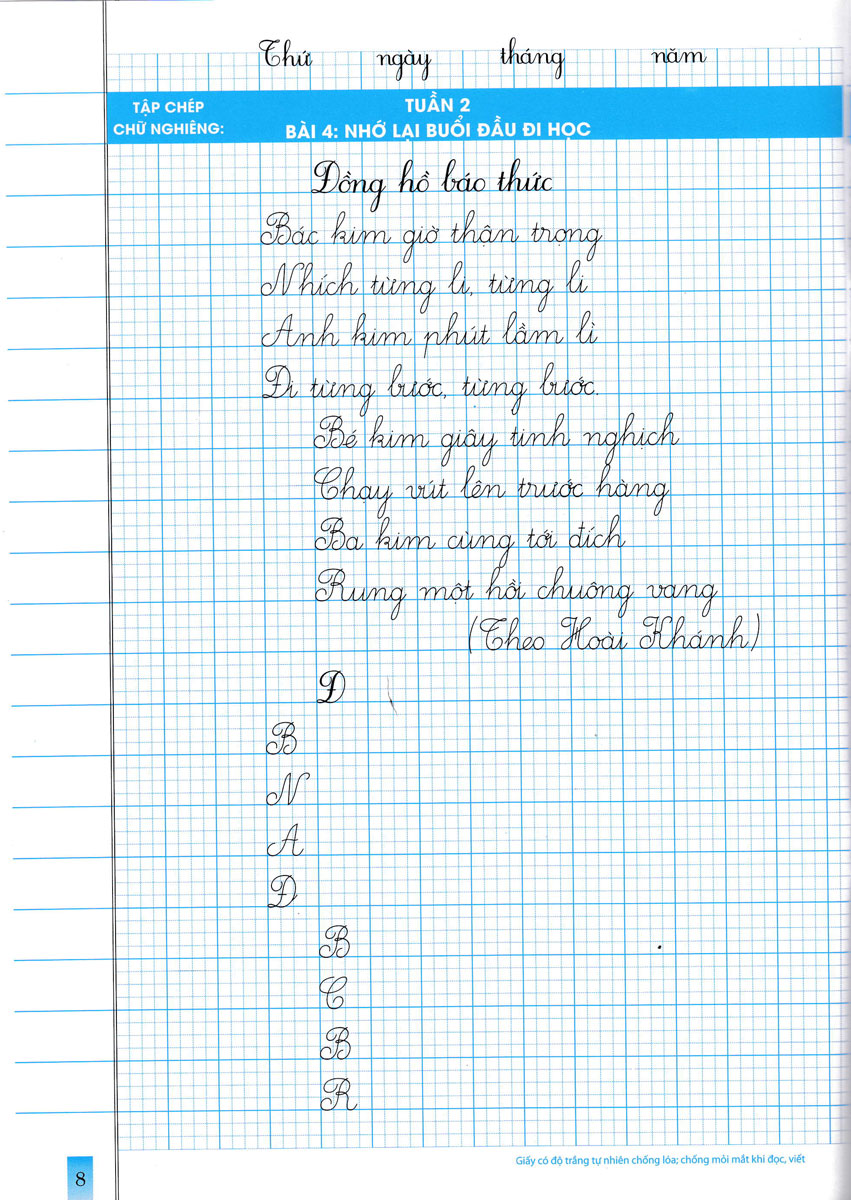 Thứ ngày tháng năm
TẬP CHÉP
CHỮ NGHIÊNG:
TUẦN 2
BÀI 4: NHỚ LẠI BUỔI ĐẦU ĐI HỌC
Đồng hồ báo thức
Bác kim giờ thận trọng
Nhích từng li, từng li
Anh kim phút lầm lì
Đi từng bước, từng bước.
Bé kim giây tinh nghịch
Chạy vút lên trước hàng
Ba kim cùng tới đích
Rung một hồi chuông vang
(Theo Hoài Khánh)
Đ
B
N
A
Đ
B
C
B
R
Giấy có độ trắng tự nhiên chống lóa; chống mỏi mắt khi đọc, viết
8